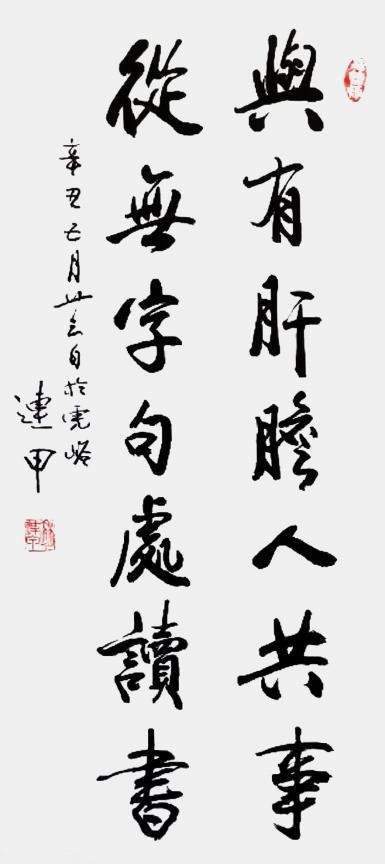 與有肝膽人共事
從無字句處讀書
辛丑七月廿日於峪
連甲